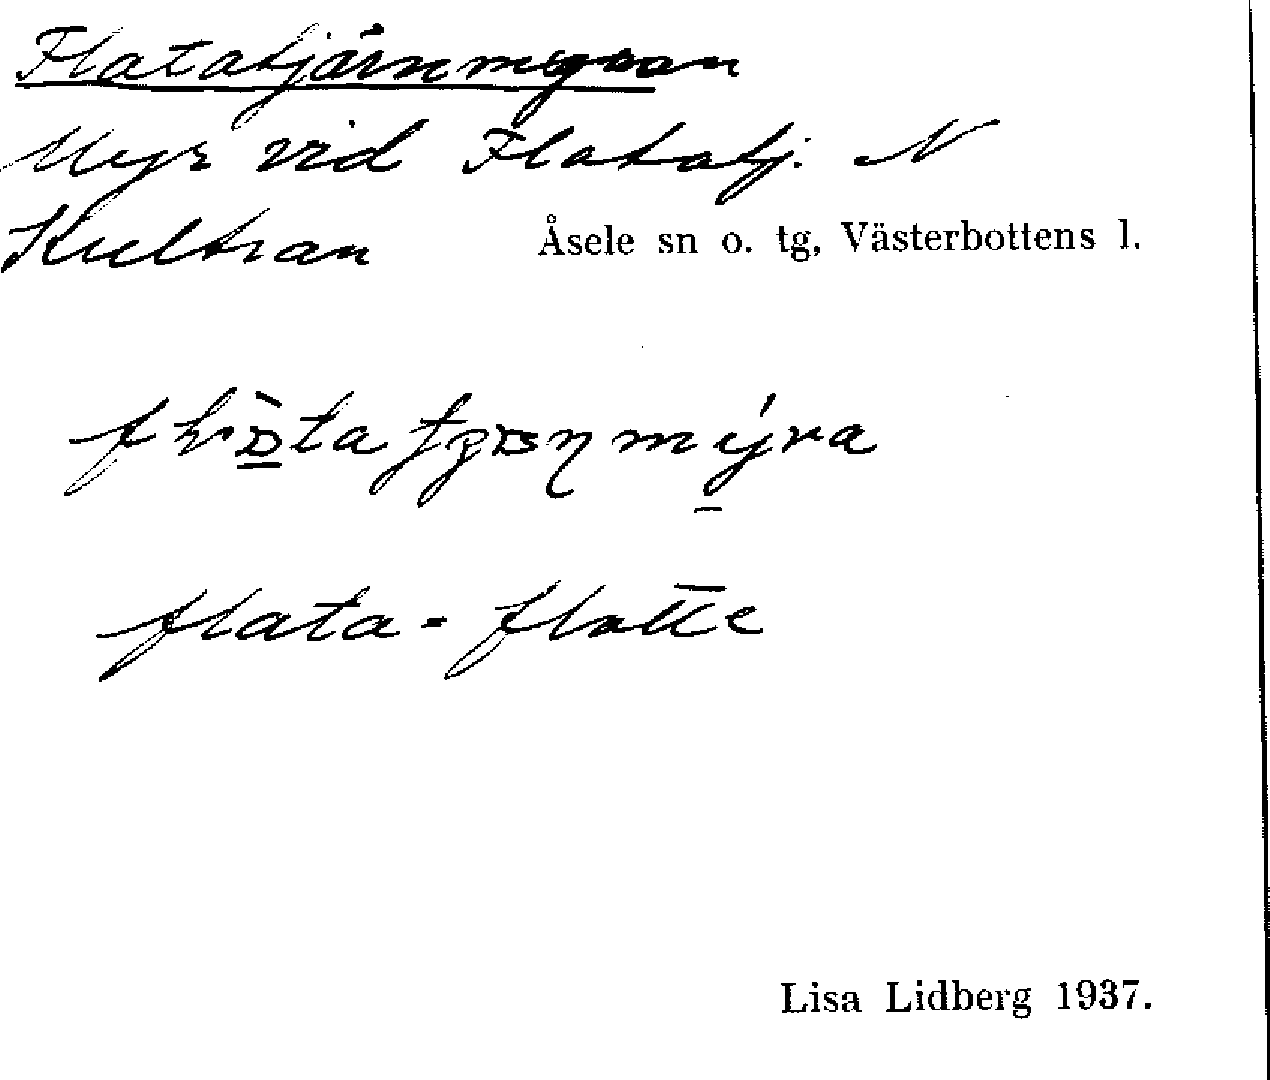 Flatatjärnmyran
Myr vid Flatatj. N
Kultran
Åsele sn o. tg, Västerbottens l.
flata - flatte
Lisa Lidberg 1937.